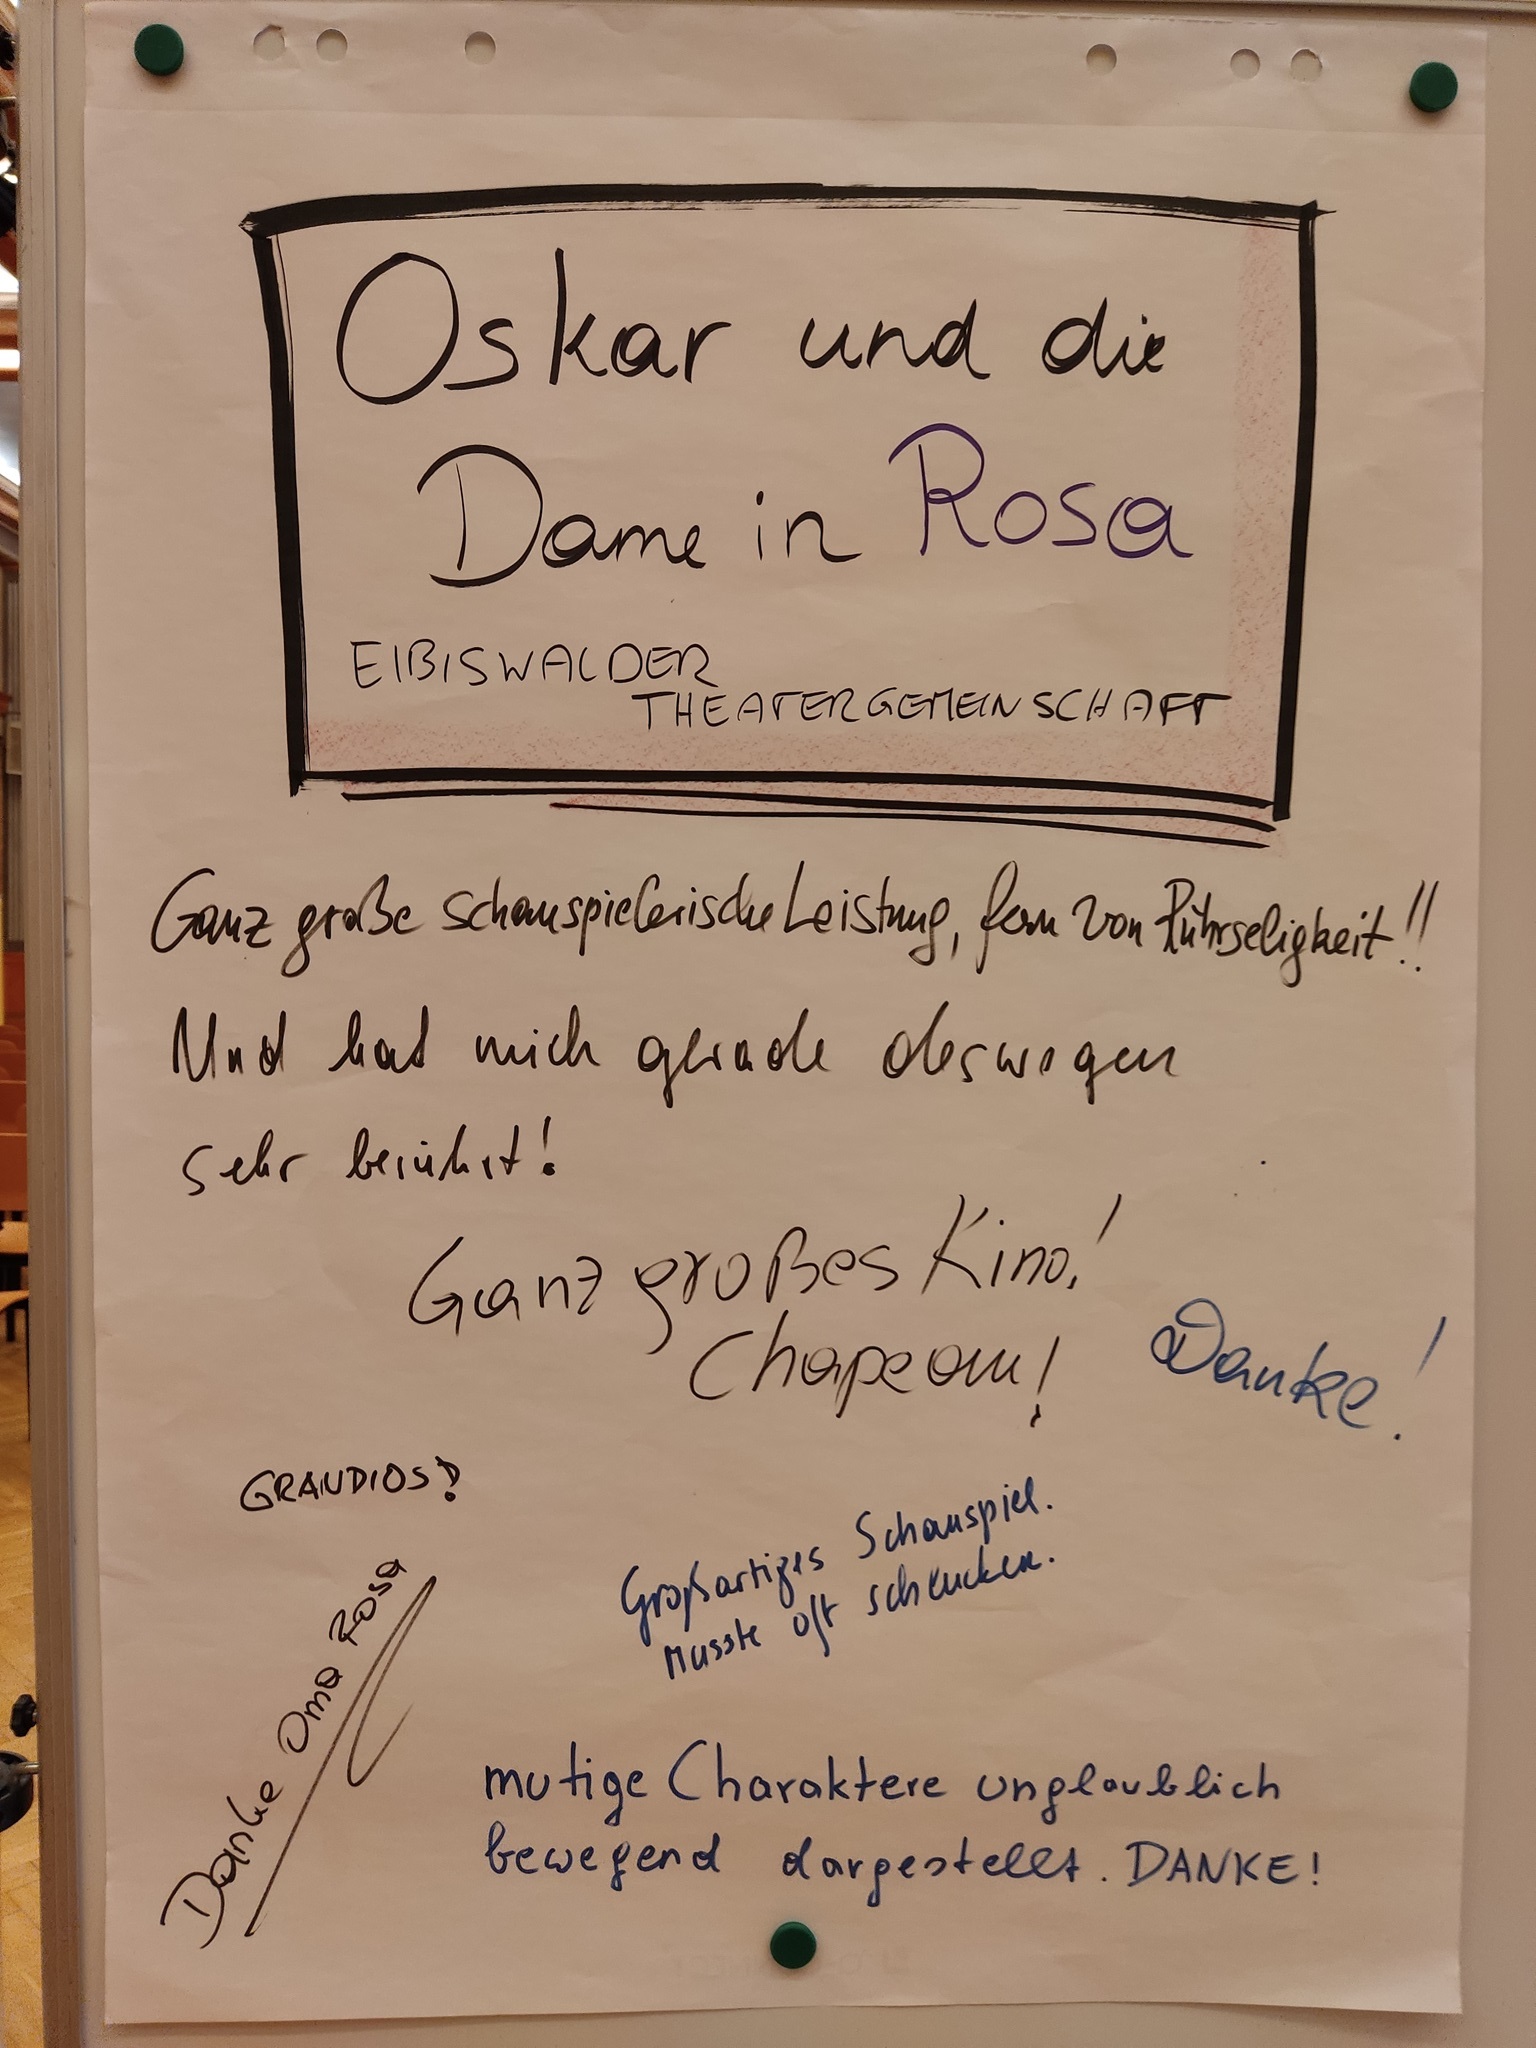 Oskar und die
Dame in Rosa
EIBISWALDER
THEATERGEMEINSCHAFT
Ganz große schauspielerische Leistung, fern von Rührseligkeit!!
Und hat mich gerade deswegen
sehr berührt!
Ganz großes Kino!
Chapeau!
Danke!
GRANDIOS!
Großartiges Schauspiel.
Musste oft schlucken.
Danke Oma Rosa
mutige Charaktere unglaublich
bewegend dargestellt. DANKE!